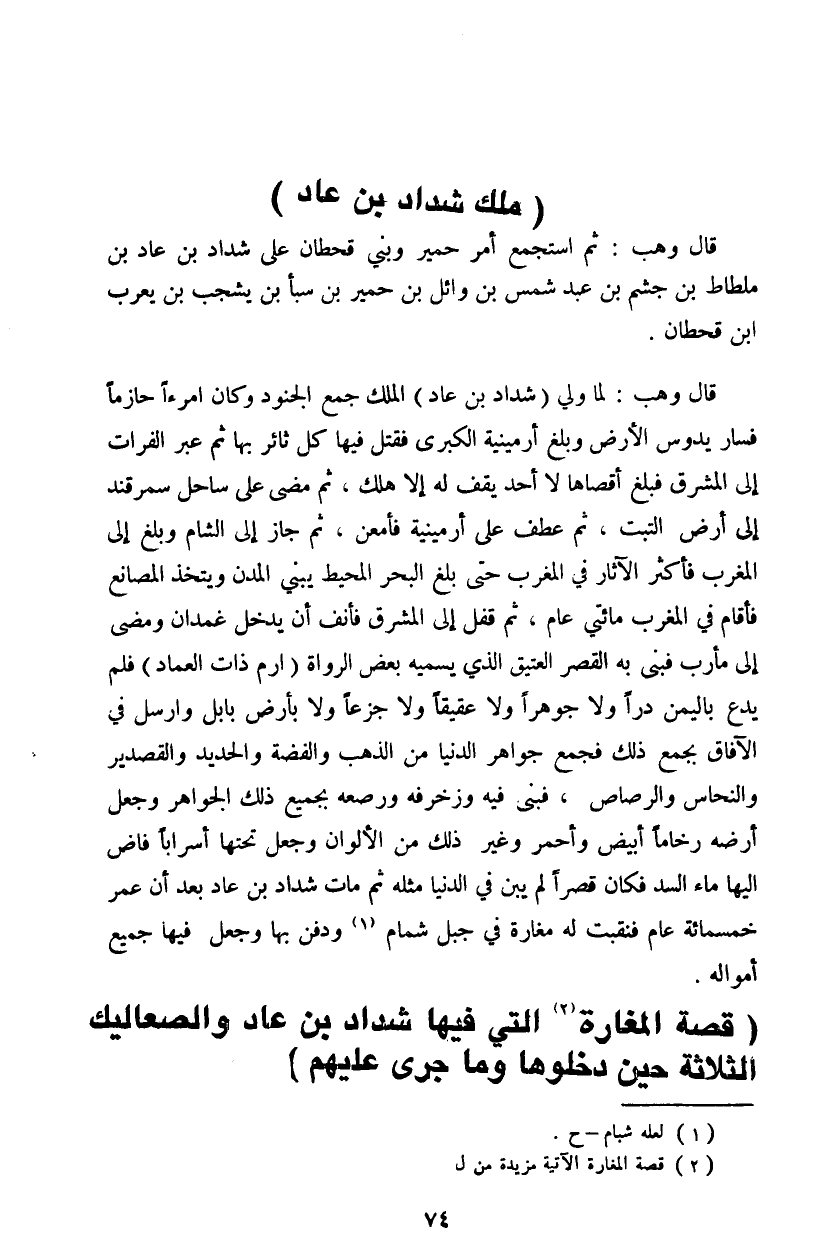 ( ملك شداد بن عاد )
قال وهب : ثم استجمع أمر حمير وبني قحطان على شداد بن عاد بن
ملطاط بن جشم بن عبد شمس بن وائل بن حمير بن سبأ بن يشجب بن يعرب
ابن قحطان .
قال وهب : لما ولي ( شداد بن عاد ) الملك جمع الجنود وكان امرءاً حازماً
فسار يدوس الأرض وبلغ أرمينية الكبرى فقتل فيها كل ثائر بها ثم عبر الفرات
إلى المشرق فبلغ أقصاها لا أحد يقف له إلا هلك ، ثم مضى على ساحل سمرقند
إلى أرض التبت ، ثم عطف على أرمينية فأمعن ، ثم جاز إلى الشام وبلغ إلى
المغرب فأكثر الآثار في المغرب حتى بلغ البحر المحيط يبني المدن ويتخذ المصانع
فأقام في المغرب مائتي عام ، ثم قفل إلى المشرق فأنف أن يدخل غمدان ومضى
إلى مأرب فبنى به القصر العتيق الذي يسميه بعض الرواة ( ارم ذات العماد ) فلم
يدع باليمن دراً ولا جوهراً ولا عقيقاً ولا جزعاً ولا بأرض بابل وارسل في
الآفاق بجمع ذلك فجمع جواهر الدنيا من الذهب والفضة والحديد والقصدير
والنحاس والرصاص ، فبنى فيه وزخرفه ورصعه بجميع ذلك الجواهر وجعل
أرضه رخاماً أبيض وأحمر وغير ذلك من الألوان وجعل تحتها أسراباً فاض
اليها ماء السد فكان قصراً لم يبن في الدنيا مثله ثم مات شداد بن عاد بعد أن عمر
خمسمائة عام فنقبت له مغارة في جبل شمام (١) ودفن بها وجعل فيها جميع
أمواله .
( قصة المغارة(٢) التي فيها شداد بن عاد والصعاليك
الثلاثة حين دخلوها وما جرى عليهم )
( ١ ) لعله شبام –ح .
( ٢ ) قصة المغارة الآتية مزيدة من ل
٧٤